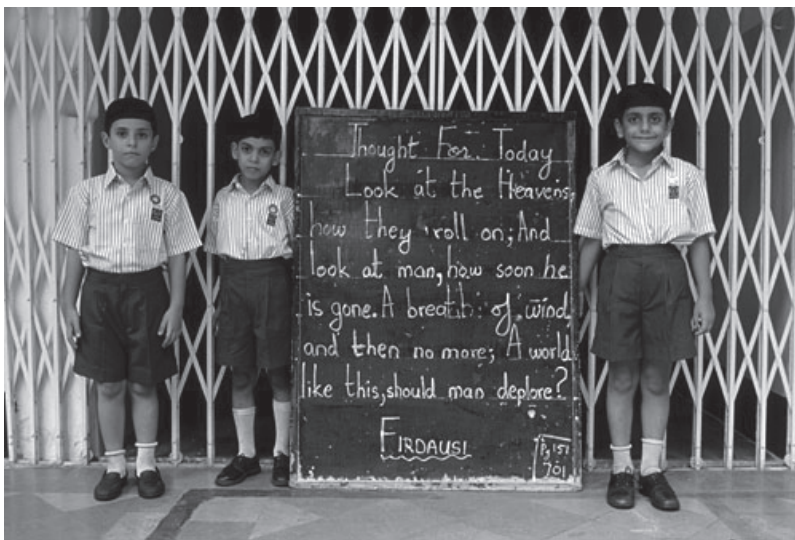 Thought For Today
Look at the Heavens,
how they roll on; And
look at man, how soon he
is gone. A breath of wind,
and then no more; A world
like this, should man deplore?
FIRDAUSI
P, 151
701